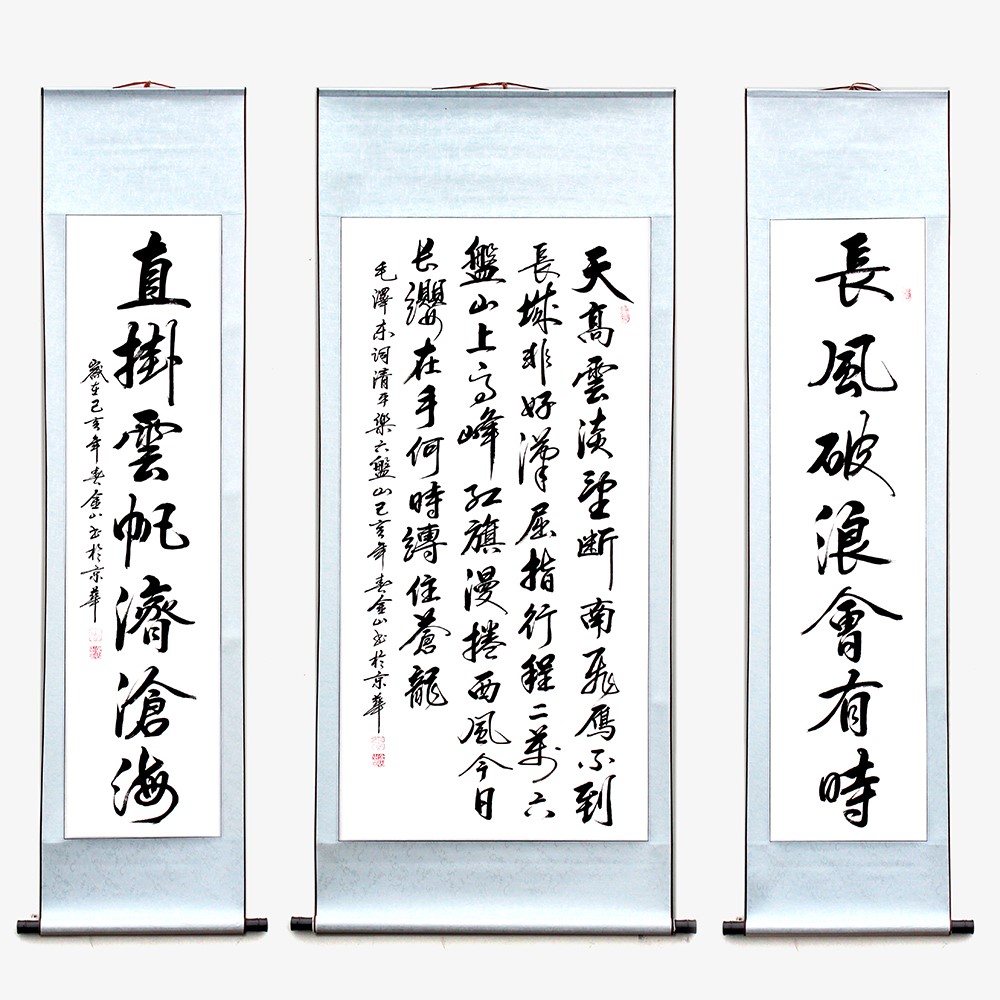 長風破浪會有時
天高雲淡望断南飛雁不到
長城非好漢屈指行程二萬六
盤山上高峰紅旗漫捲西風今日
长纓在手何時縛住蒼龍
毛澤东词清平樂六盤山己亥年春金山书於京華
直掛雲帆濟滄海
歲在己亥年春金山书於京華